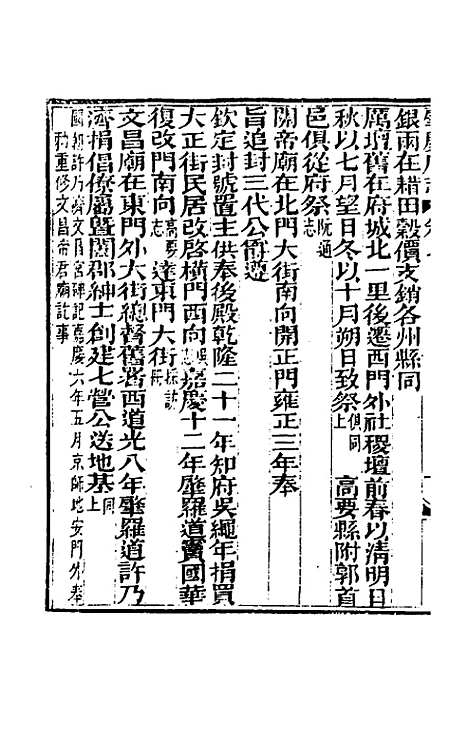 銀兩在耤田穀價支銷各州縣同
厲壇舊在府城北一里後遷西門外社稷壇前春以清明日
秋以七月望日冬以十月朔日致祭俱同上 高要縣附郭首
邑俱從府祭阮通志
關帝廟在北門大街南向開正門雍正三年奉
旨追封三代公爵遵
欽定封號置主供奉後殿乾隆二十一年知府吳繩年捐買
大正街民居改啟橫門西向吳志嘉慶十二年肇羅道竇國華
復改門南向高要志達東門大街採訪冊
文昌廟在東門外大街總督舊署西道光八年肇羅道許乃
濟捐倡僚屬暨闔郡紳士創建七營公送地基同上
國朝許乃濟文昌宮碑記嘉慶六年五月京師地安門外奉
勅重修文昌帝君廟訖事